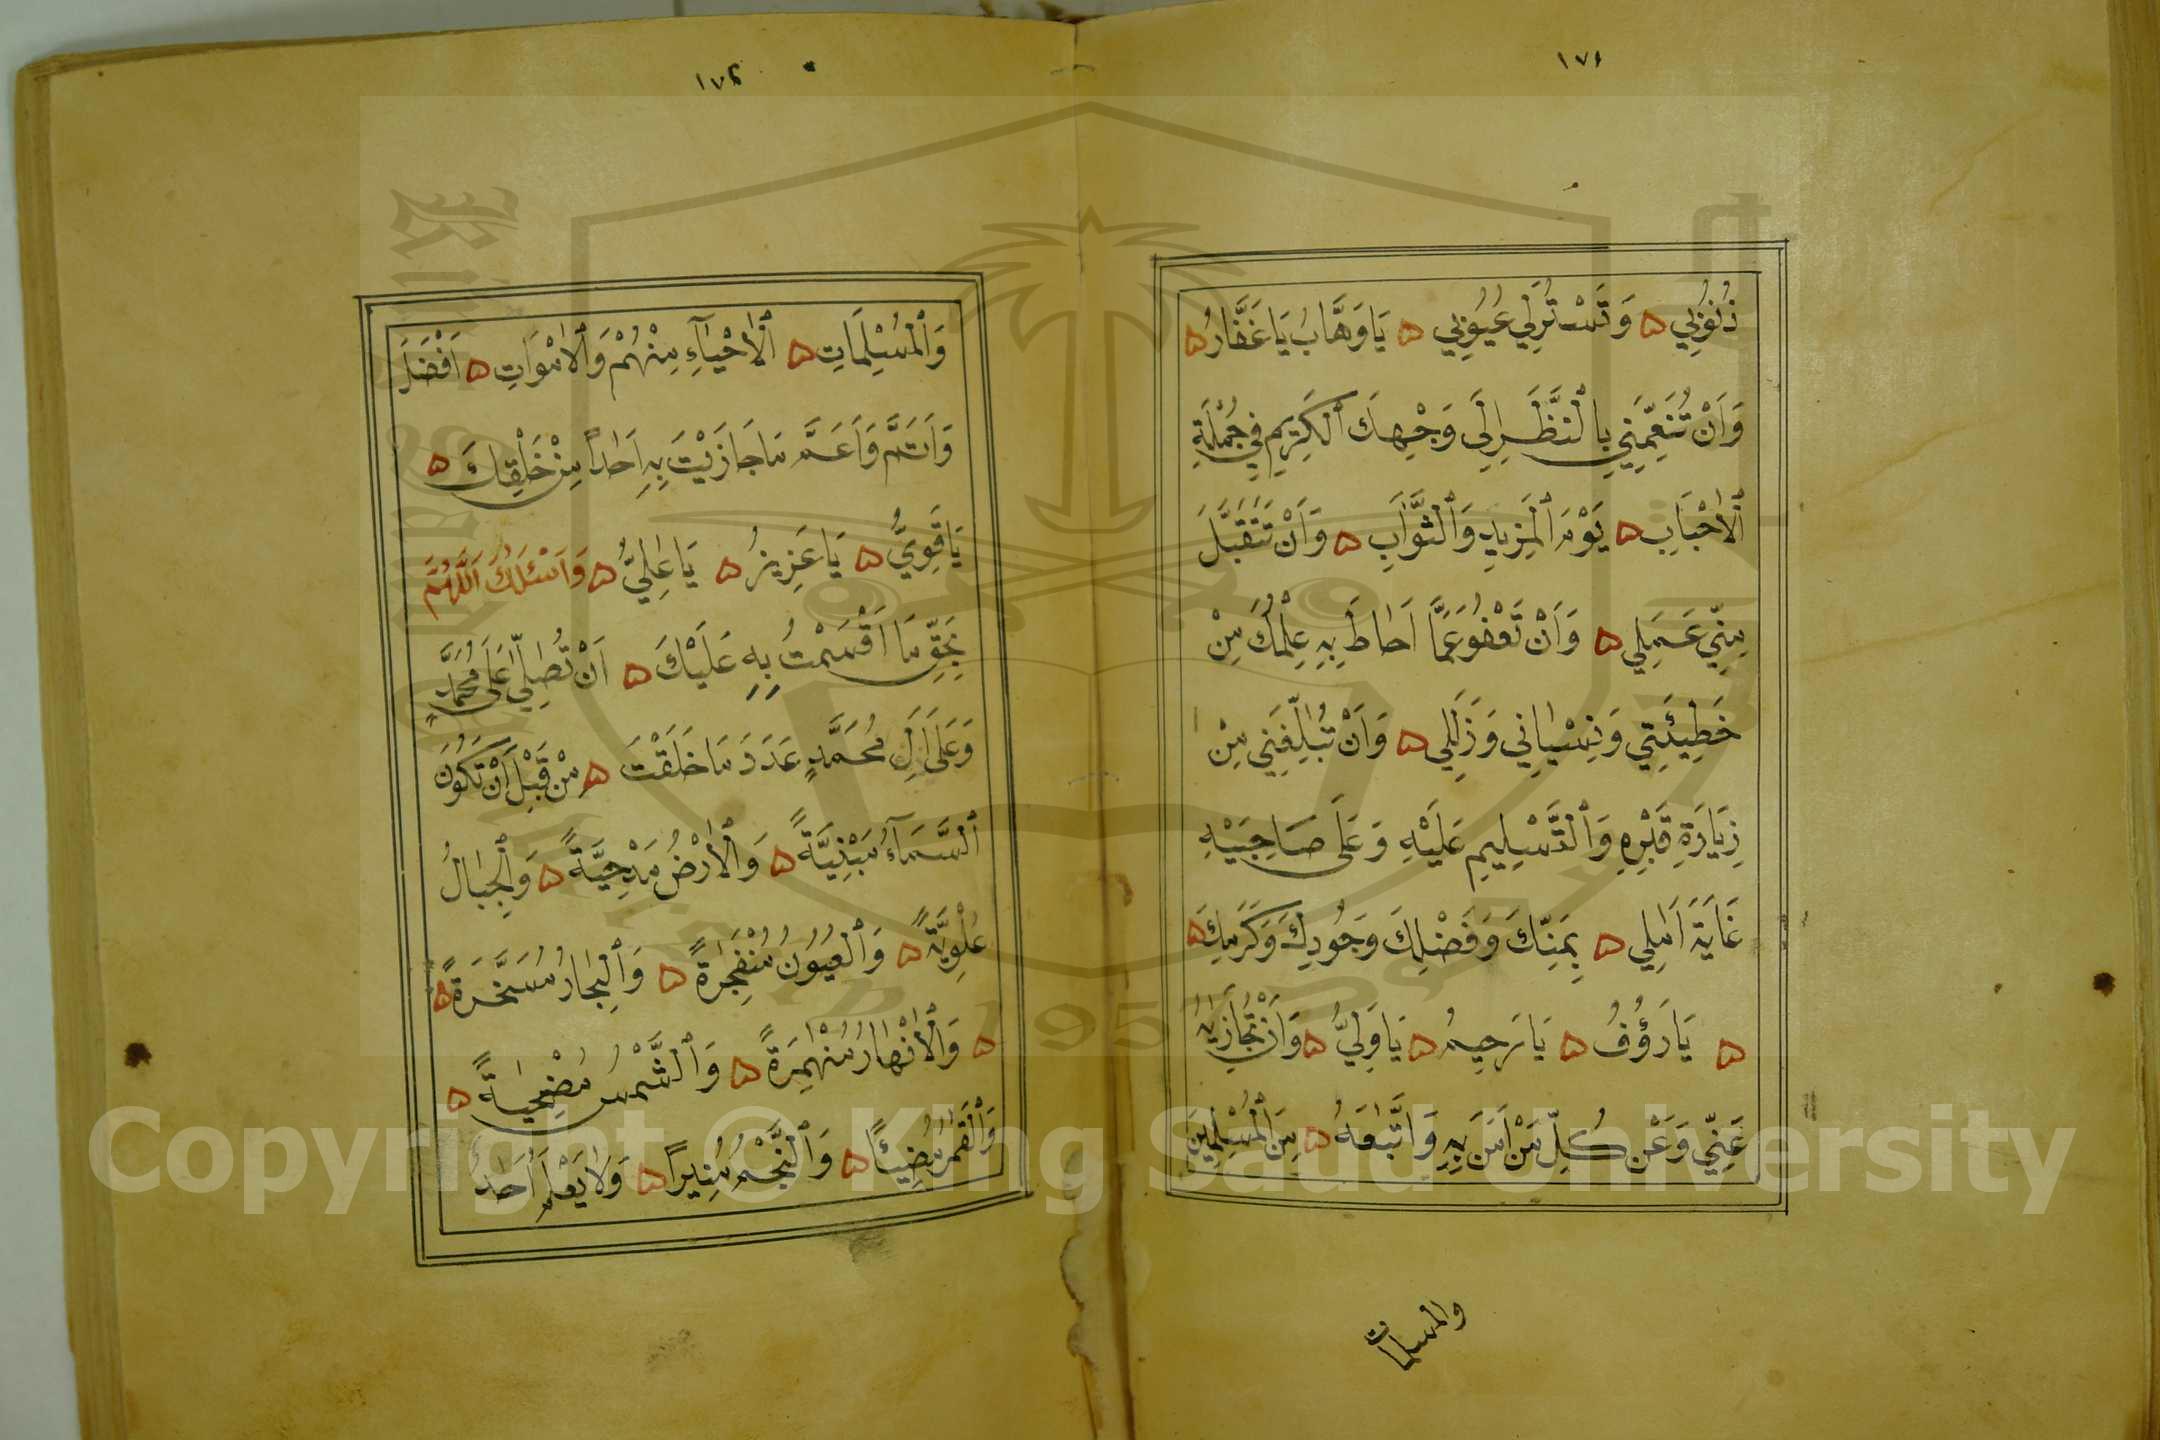 ١٧١
ذُنُوبِي ۵ وَتَسْتُرَلِي عُيُوبِي ۵ يَا وَهَّابُ يَا غَفَّارُ ۵
وَاَنْ تُنَعِّمَنِي بِالنَّظَرِ اِلَى وَجْهِكَ الْكَرِيمِ فِي جُمْلَةِ
الْاَحْبَابِ ۵ يَوْمَ الْمَزِيدِ وَالثَّوَابِ ۵ وَاَنْ تَتَقَبَّلَ
مِنِّي عَمَلِي ۵ وَاَنْ تَعْفُوَ عَمَّا اَحَاطَ بِهِ عِلْمُكَ مِنْ
خَطِيئَتِي وَنِسْيَانِي وَزَلَلِي ۵ وَاَنْ تُبَلِّغَنِي مِنْ
زِيَارَةِ قَبْرِهِ وَالتَّسْلِيمِ عَلَيْهِ وَعَلَى صَاحِبَيْهِ
غَايَةَ اَمَلِي ۵ بِمَنِّكَ وَفَضْلِكَ وَجُودِكَ وَكَرَمِكَ ۵
۵ يَا رَؤُفُ ۵ يَا رَحِيمُ ۵ يَا وَلِيُّ ۵ وَاَنْ تُجَازِيَهُ
عَنِّي وَعَنْ كُلِّ مَنْ اٰمَنَ بِهِ وَاتَّبَعَهُ ۵ مِنَ الْمُسْلِمِينَ
والمسلمات
١٧٢
وَالْمُسْلِمَاتِ ۵ الْاَحْيَآءِ مِنْهُمْ وَالْاَمْوَاتِ ۵ اَفْضَلَ
وَاَتَمَّ وَاَعَمَّ مَا جَازَيْتَ بِهِ اَحَداً مِنْ خَلْقِكَ ۵
يَا قَوِيُّ ۵ يَا عَزِيزُ ۵ يَا عَلِيُّ ۵ وَاَسْئَلُكَ اَللّٰهُمَّ
بِحَقِّ مَا اَقْسَمْتُ بِهِ عَلَيْكَ ۵ اَنْ تُصَلِّيَ عَلَى مُحَمَّدٍ
وَعَلَى اٰلِ مُحَمَّدٍ عَدَدَ مَا خَلَقْتَ ۵ مِنْ قَبْلِ اَنْ تَكُونَ
السَّمَآءُ مَبْنِيَّةً ۵ وَالْاَرْضُ مَدْحِيَّةً ۵ وَالْجِبَالُ
عُلْوِيَّةً ۵ وَالْعُيُونُ مُنْفَجِرَةً ۵ وَالْبِحَارُ مُسَخَّرَةً ۵
۵ وَالْاَنْهَارُ مُنْهَمِرَةً ۵ وَالشَّمْسُ مُضْحِيَةً ۵
وَالْقَمَرُ مُضِيئًا ۵ وَالنَّجْمُ مُنِيرًا ۵ وَلَا يَعْلَمُ اَحَدٌ
Copyright © King Saud University
1957